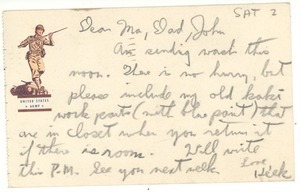 SAT 2
Dear Ma, Dad, John
Am sending wash this
noon. There is no hurry, but
please include my old kaki
work pants (with blue paint) that
are in closet when you return it
if there is room. Will write
this P.M. See you next week.
Love
UNITED STATES
ARMY